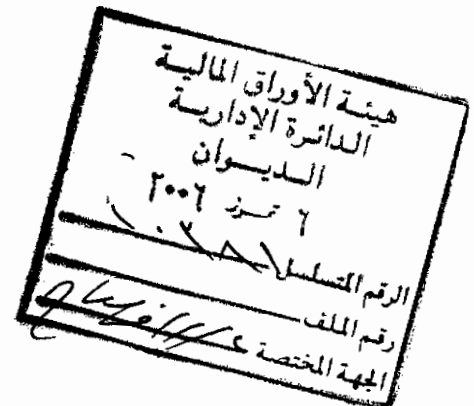 هيئة الأوراق المالية
الدائرة الإدارية
الديوان
٦ تموز ٢٠٠٦
الرقم المتسلسل
رقم الملف
الجهة المختصة الافصاح